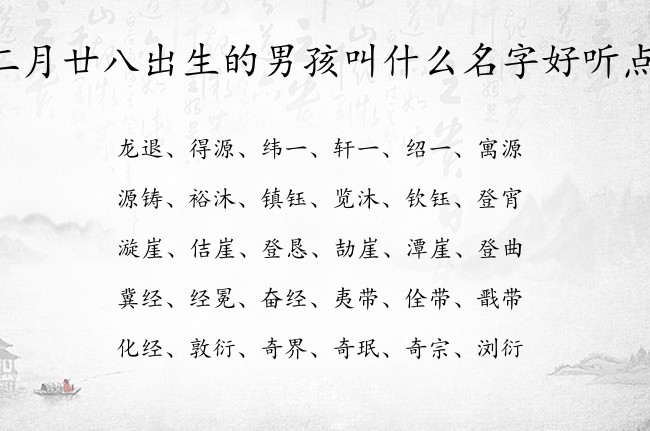 二月廿八出生的男孩叫什么名字好听点
龙退、得源、纬一、轩一、绍一、寓源
源铸、裕沐、镇钰、览沐、钦钰、登宵
漩崖、佶崖、登恳、劼崖、潭崖、登曲
冀经、经冕、奋经、夷带、佺带、戬带
化经、敦衍、奇界、奇珉、奇宗、浏衍